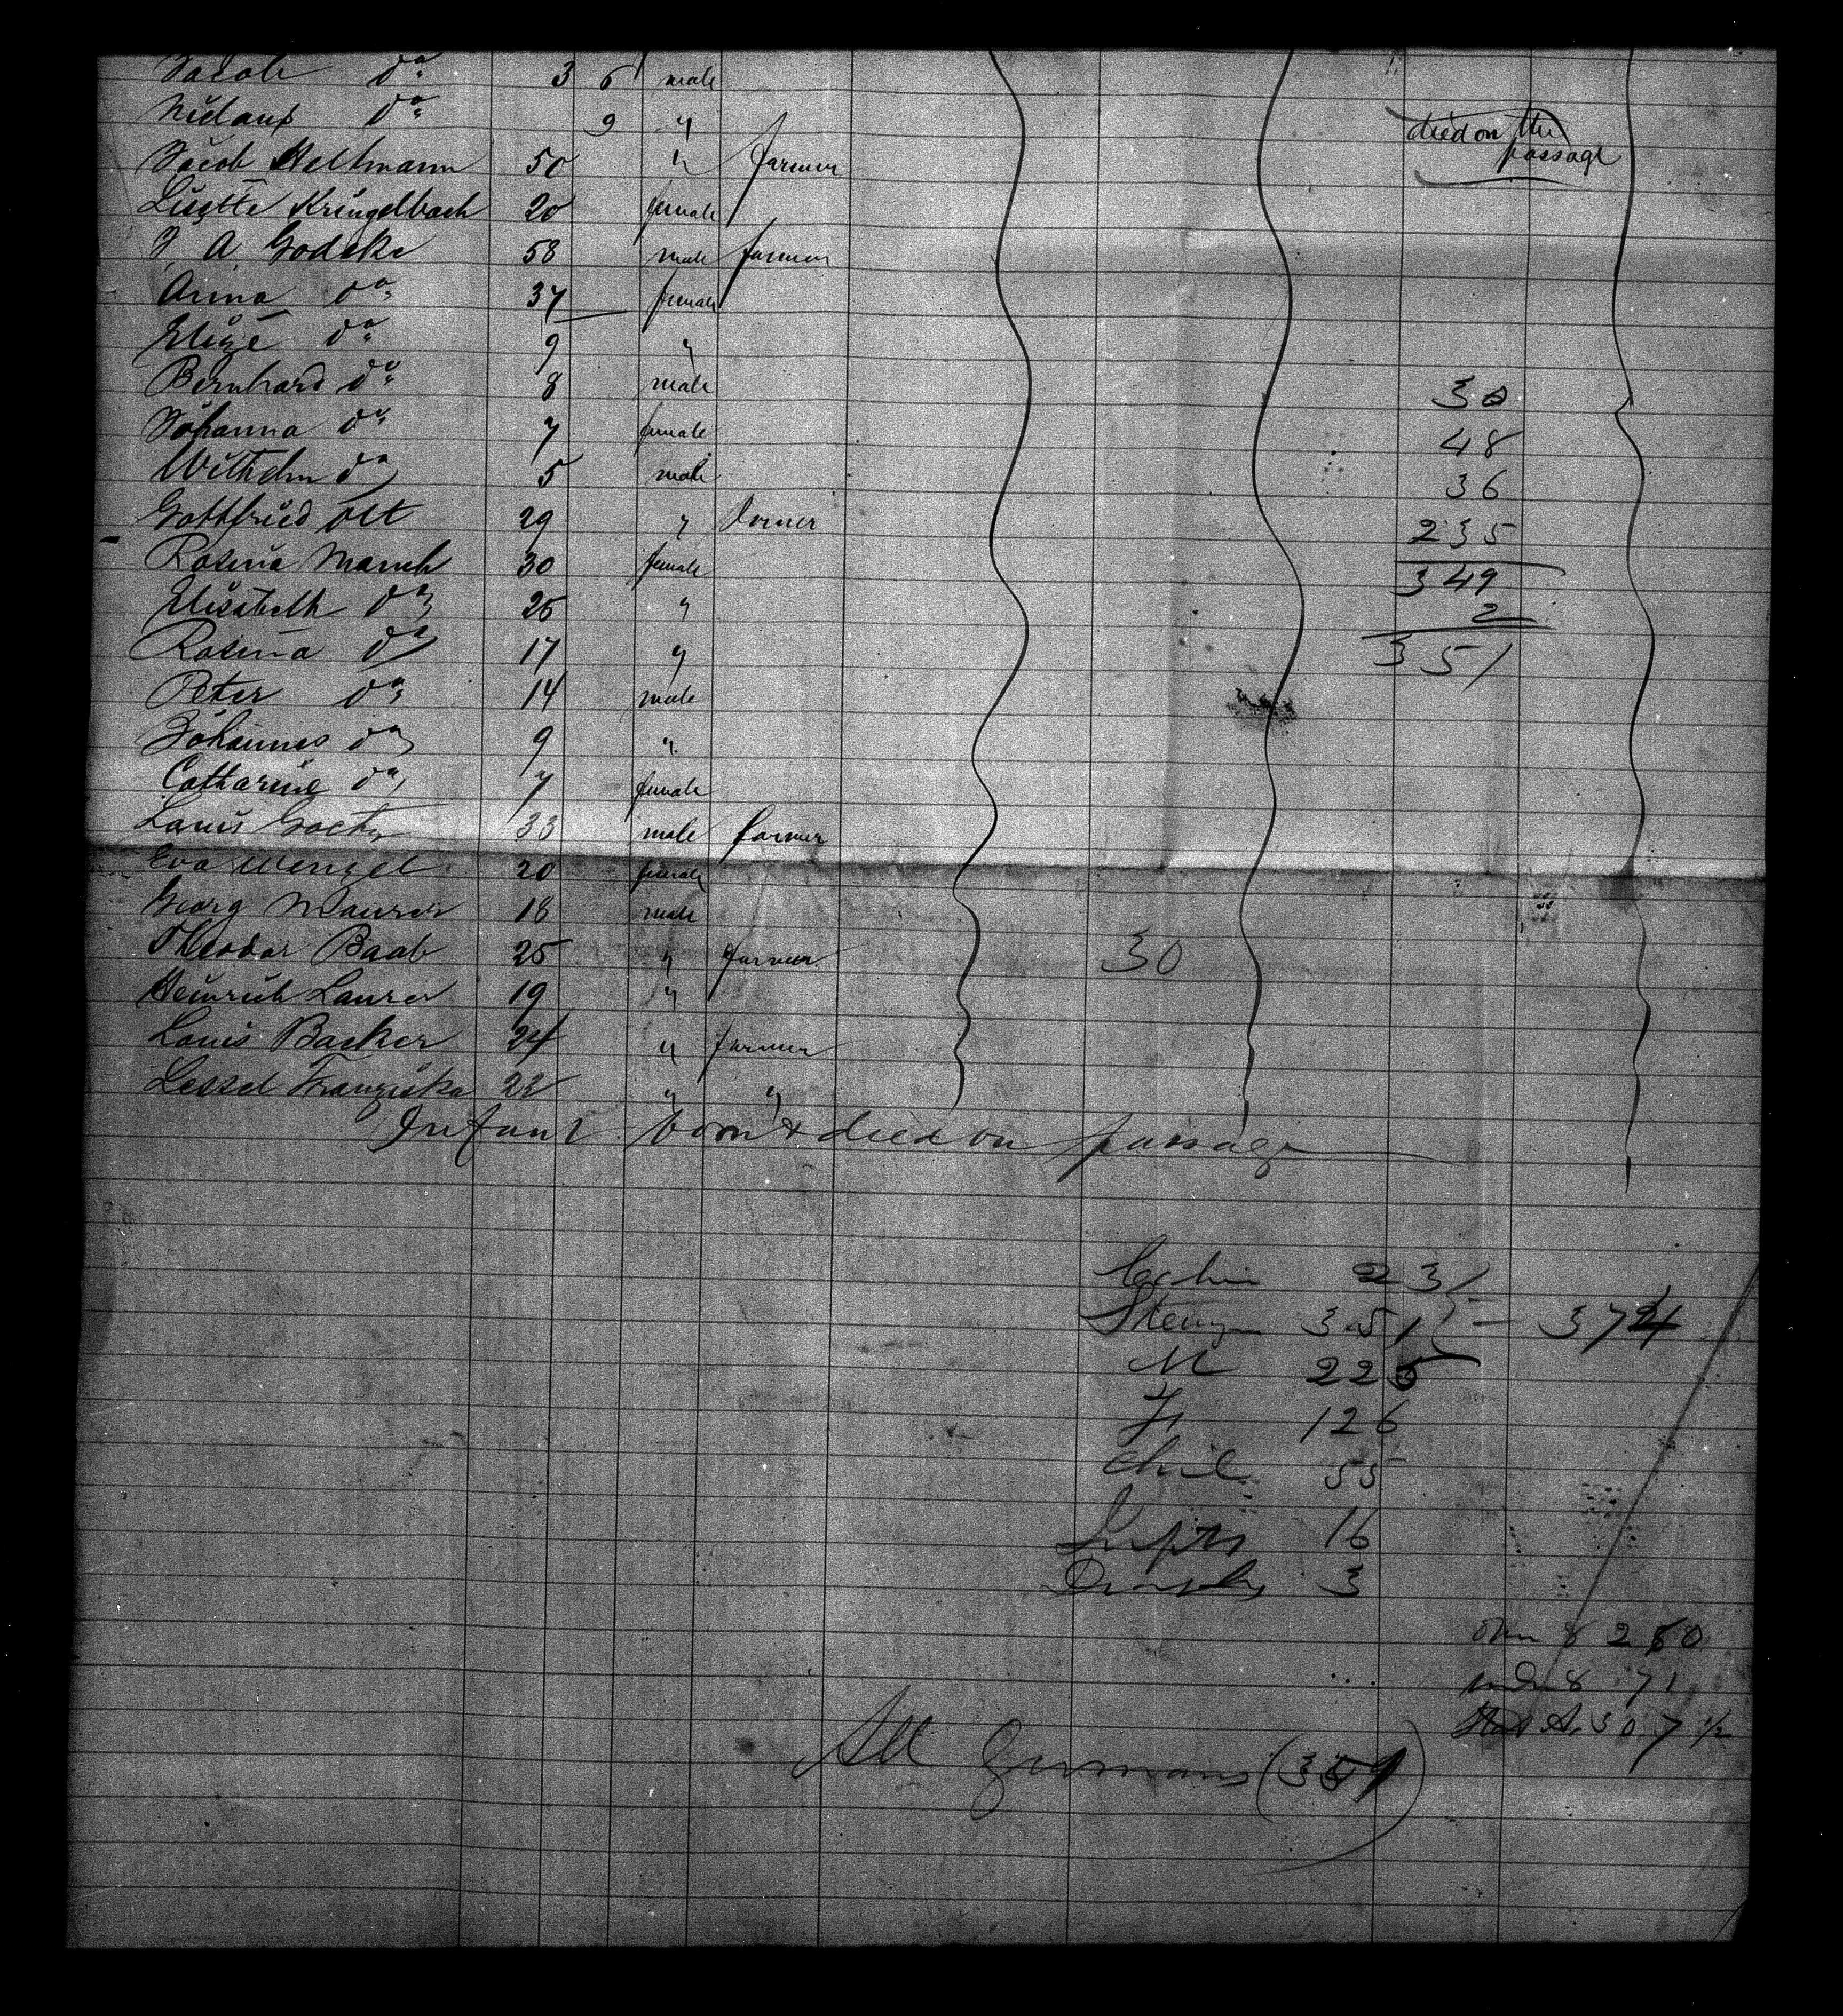 Jacob do 3 6 male
do 9 " died on the
Jacob Heltmann 50 " farmer passage
Lisette Kringelbach 20 female
J. A Godeke 58 male farmer
Anna do 37 female
Elize do 9 "
Bernhard do 8 male 30
Johanna do 7 female 48
Wilhelm do 5 male 36
Gottfried Ott 29 " farmer 235
Rosina March 30 female 349
Elisabeth do 25 " 2
Rosina do 17 " 351
Peter do 14 male
Johannes do 9 "
Catharine do 7 female
Louis 33 male farmer
Eva Wenzel 20 female
Georg Maurer 18 male
Theodor Baab 25 " farmer 30
Heinrich Laurer 19 "
Louis Backer 24 " farmer
Lessel Franziska 22 " "
Infant born & died on passage
23
351 — 374
M 225
F 126
Chil 55
Infts 16
Deaths 3
over 8 280
under 8 71
307 1/2
All Germans (351)